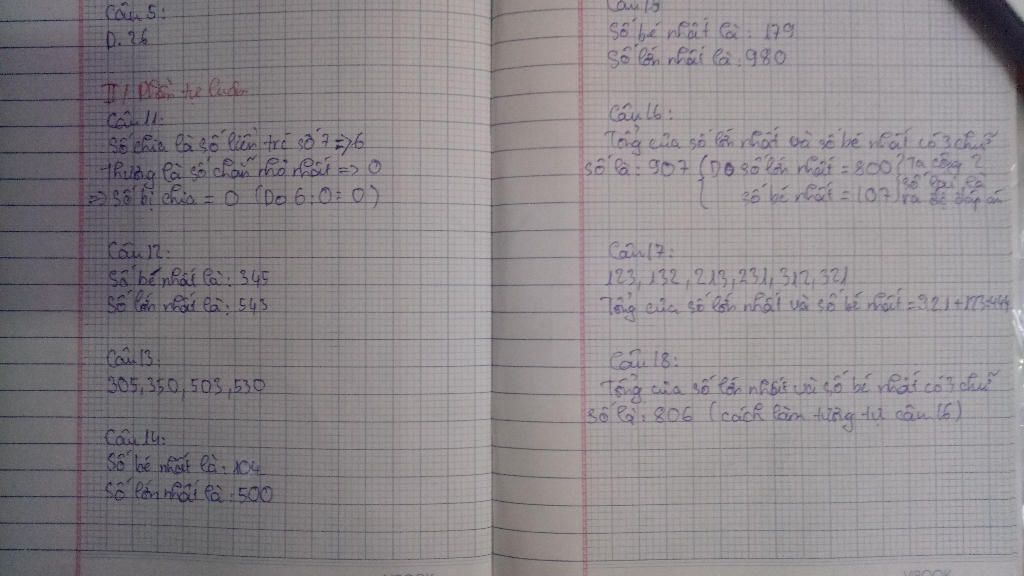 Câu 5:
D. 26
II/ Phần tự luận
Câu 11:
Số chia là số liền trước số 7 => 6
Thương là số chẵn nhỏ nhất => 0
=> Số bị chia = 0 (Do 6 : 0 = 0)
Câu 12:
Số bé nhất là: 345
Số lớn nhất là: 543
Câu 13:
305, 350, 503, 530
Câu 14:
Số bé nhất là: 104
Số lớn nhất là: 500
Câu 15
Số bé nhất là: 179
Số lớn nhất là: 980
Câu 16:
Tổng của số lớn nhất và số bé nhất có 3 chữ
số là: 907 (Do số lớn nhất = 800 Ta cộng 2
số lại là
số bé nhất = 107) ra đáp án
Câu 17:
123, 132, 213, 231, 312, 321
Tổng của số lớn nhất và số bé nhất =
Câu 18:
Tổng của số lớn nhất và số bé nhất có 3 chữ
số là: 806 (cách làm tương tự câu 16)